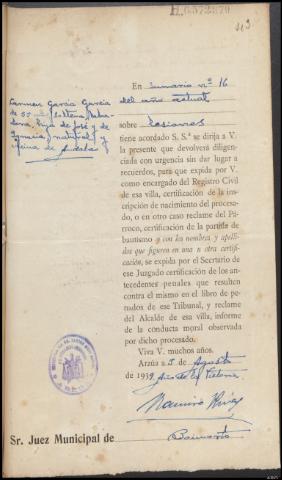 113
En Sumario nº 16
del año actual
Carmen García García
de 55, soltera, labra-
dora, hija de José y de
natural y
vecina de
sobre Lesiones
tiene acordado S. Sª se dirija a V.
la presente que devolverá diligen-
ciada con urgencia sin dar lugar a
recuerdos, para que expida por V.
como encargado del Registro Civil
de esa villa, certificación de la ins-
cripción de nacimiento del procesa-
do, o en otro caso reclame del Pá-
rroco, certificación de la partida de
bautismo y con los nombres y apelli-
dos que figuren en una u otra certifi-
cación, se expida por el Secretario de
ese Juzgado certificación de los an-
tecedentes penales que resulten
contra el mismo en el libro de pe-
nados de ese Tribunal, y reclame
del Alcalde de esa villa, informe
de la conducta moral observada
por dicho procesado.
Viva V. muchos años.
Arzúa a 5 de Agosto
de 1939 Año de la Victoria
Ramiro
Sr. Juez Municipal de Boimorto